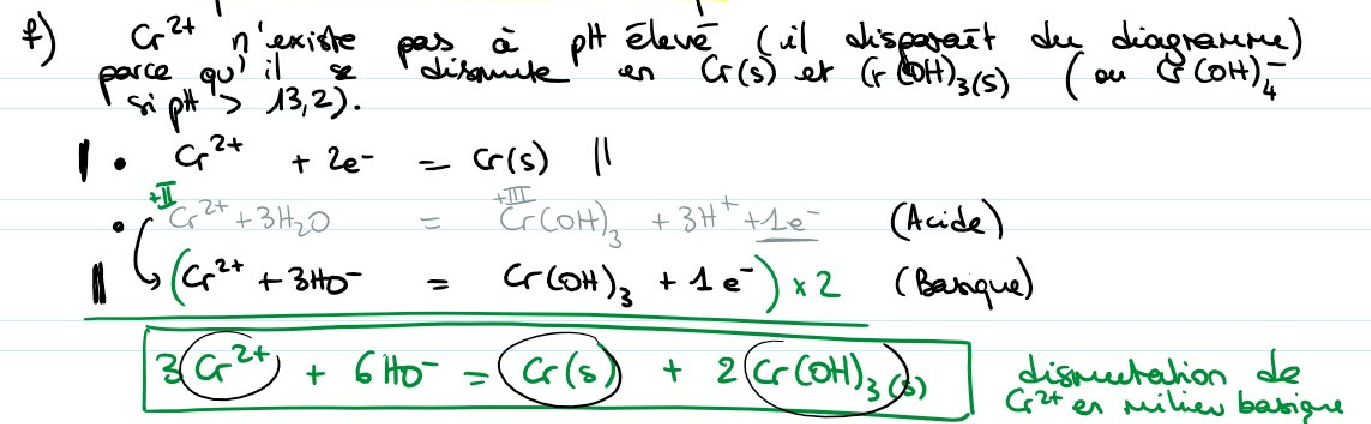 f) Cr²⁺ n'existe pas à pH élevé (il disparaît du diagramme)
parce qu'il se dismute en Cr(s) et Cr(OH)₃(s) (ou Cr(OH)₄⁻
si pH > 13,2).
• Cr²⁺ + 2e⁻ = Cr(s)
+II +III
• Cr²⁺ + 3H₂O = Cr(OH)₃ + 3H⁺ + 1e⁻ (Acide)
(Cr²⁺ + 3HO⁻ = Cr(OH)₃ + 1e⁻) × 2 (Basique)
3Cr²⁺ + 6HO⁻ = Cr(s) + 2Cr(OH)₃(s) dismutation de
Cr²⁺ en milieu basique